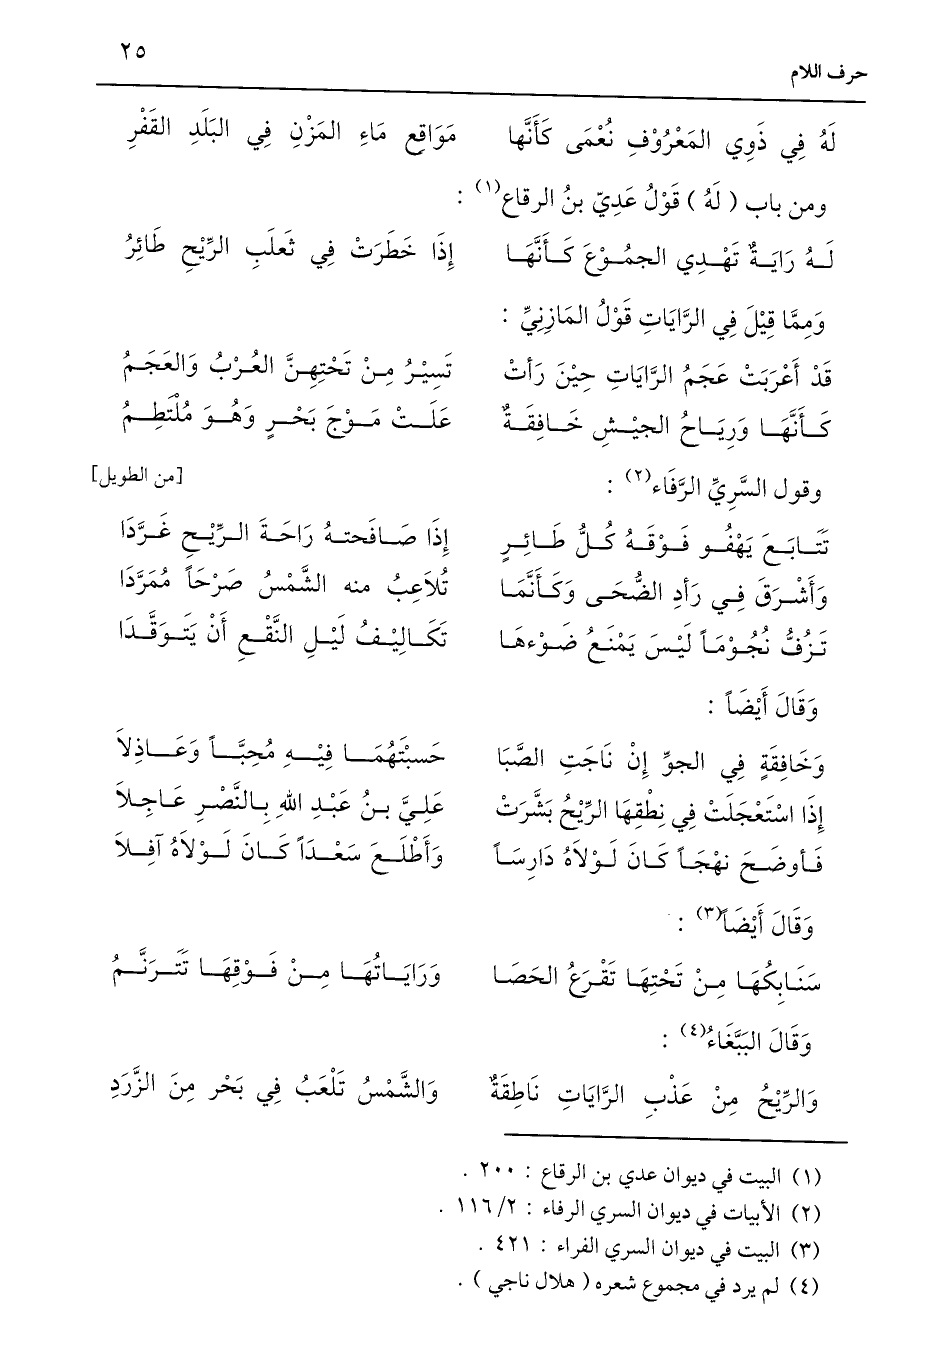 ٢٥
حرف اللام
لَهُ فِي ذَوِي المَعْرُوْفِ نُعْمَى كَأَنَّها مَوَاقِعِ مَاءِ المَزْنِ فِي البَلَدِ القَفْرِ
ومن باب ( لَهُ ) قَوْلُ عَدِيّ بنُ الرقاع(١) :
لَهُ رَايَةٌ تَهْدِي الجمُوْعَ كَأَنَّهَا إِذَا خَطَرَتْ فِي ثَعلَبِ الرِّيْحِ طَائِرُ
وَمِمَّا قِيْلَ فِي الرَّايَاتِ قَوْلُ المَازِنِيِّ :
قَدْ أَعْرَبَتْ عَجَمُ الرَّايَاتِ حِيْنَ رَأتْ تَسِيْرُ مِنْ تَحْتِهِنَّ العُرْبُ وَالعَجَمُ
كَأَنَّهَا وَرِيَاحُ الجيْشِ خَافِقَةٌ عَلَتْ مَوْجَ بَحْرٍ وَهُوَ مُلْتَطِمُ
وقول السَّرِيِّ الرَّفَاء(٢) : [من الطويل]
تَتَابَعَ يَهْفُو فَوْقَهُ كُلُّ طَائِرٍ إِذَا صَافَحتهُ رَاحَةَ الرِّيْحِ غَرَّدَا
وَأَشْرَقَ فِي رَأدِ الضُّحَى وَكَأَنَّمَا تُلاَعِبُ منه الشَّمْسُ صَرْحَاً مُمَرَّدَا
تَزُفُّ نُجُوْمَاً لَيْسَ يَمْنَعُ ضَوْءهَا تَكَالِيْفُ لَيْلِ النَّقْعِ أَنْ يَتَوَقَّدَا
وَقَالَ أَيْضَاً :
وَخَافِقَةٍ فِي الجوِّ إِنْ نَاجَتِ الصَّبَا حَسِبْتَهُمَا فِيْهِ مُحِبَّاً وَعَاذِلاَ
إِذَا اسْتَعْجَلَتْ فِي نِطْقِهَا الرِّيْحُ بَشَّرَتْ عَلِيَّ بنُ عَبْدِ اللهِ بِالنَّصْرِ عَاجِلاَ
فَأَوضَحَ نهْجَاً كَانَ لَوْلاَهُ دَارِسَاً وَأَطْلَعَ سَعْدَاً كَانَ لَوْلاَهُ آفِلاَ
وَقَالَ أَيْضَاً(٣) :
سَنَابِكُهَا مِنْ تَحْتِهَا تَقْرَعُ الحَصَا وَرَايَاتُهَا مِنْ فَوْقِهَا تَتَرَنَّمُ
وَقَالَ البَبَّغَاءُ(٤) :
وَالرِّيْحُ مِنْ عَذْبِ الرَّايَاتِ نَاطِقَةٌ وَالشَّمْسُ تَلْعَبُ فِي بَحْرٍ مِنَ الزَّرَدِ
(١) البيت في ديوان عدي بن الرقاع : ٢٠٠ .
(٢) الأبيات في ديوان السري الرفاء : ٢/ ١١٦ .
(٣) البيت في ديوان السري الفراء : ٤٢١ .
(٤) لم يرد في مجموع شعره ( هلال ناجي ) .